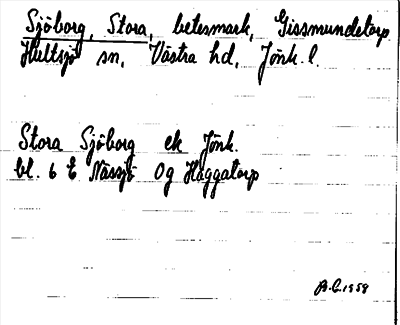 Sjöborg, Stora, betesmark, Gissmundetorp
Hultsjö sn, Västra hd, Jönk. l.
Stora Sjöborg ek Jönk.
bl. 6 E Nässjö Og Häggatorp
B.E. 1958